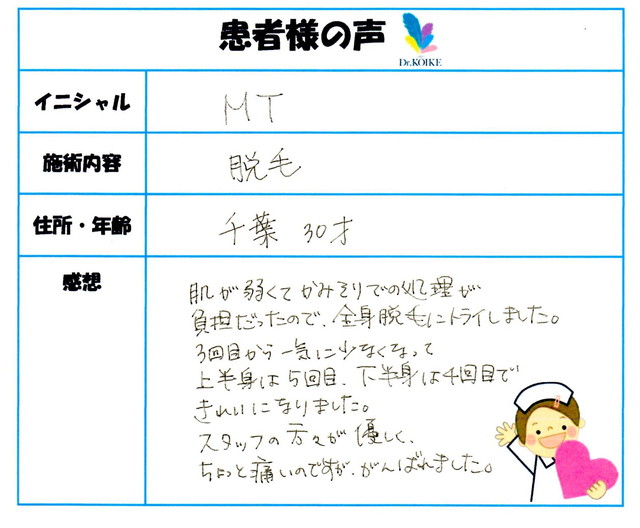 患者様の声
Dr.KOIKE
イニシャル
MT
施術内容
脱毛
住所・年齢
千葉 30才
感想
肌が弱くてかみそりでの処理が
負担だったので、全身脱毛にトライしました。
3回目から一気に少なくなって
上半身は5回目、下半身は4回目で
きれいになりました。
スタッフの方々が優しく、
ちょっと痛いのですが、がんばれました。